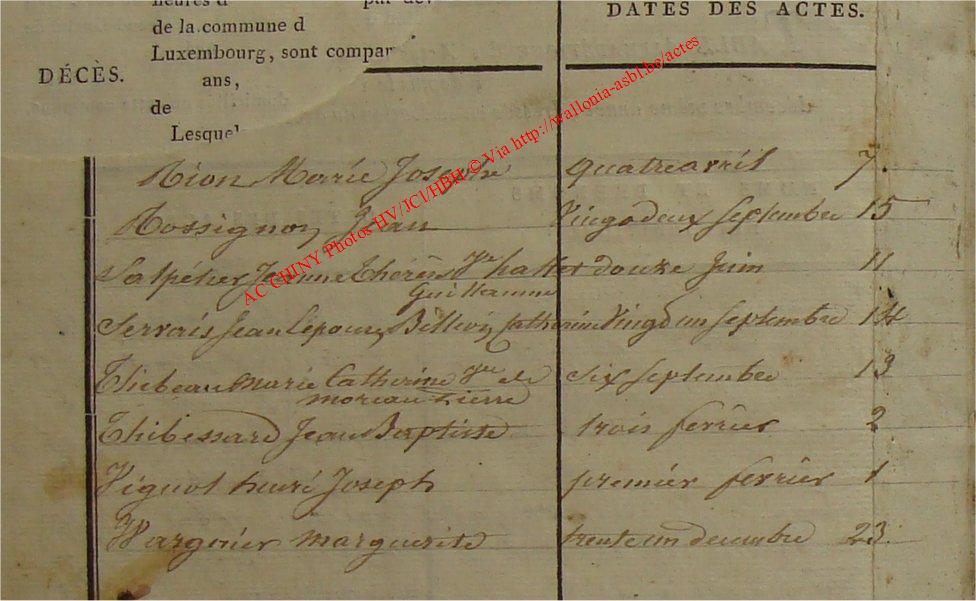 DATES DES ACTES.
de la commune d
Luxembourg, sont compar
DÉCÈS.
ans,
de
Lesque
Rion Marie Josephe quatre avril 7.
Rossignon Jean Vingt deux Septembre 15
Salpéter Jeanne Thérèse Ve hallet douze Juin 11
Guillaume
Servais Jean Epoux Catherine Vingt un Septembre 14
Thiebeau Marie Catherine Ve de six septembre 13
moreau Pierre
Thibessard Jean Baptiste trois février 2
Vignol henri Joseph premier février 1
Wargnier marguerite trente un decembre 23
AC CHINY Photos HV/JCl/HBH © Via http://wallonia-asbl.be/actes